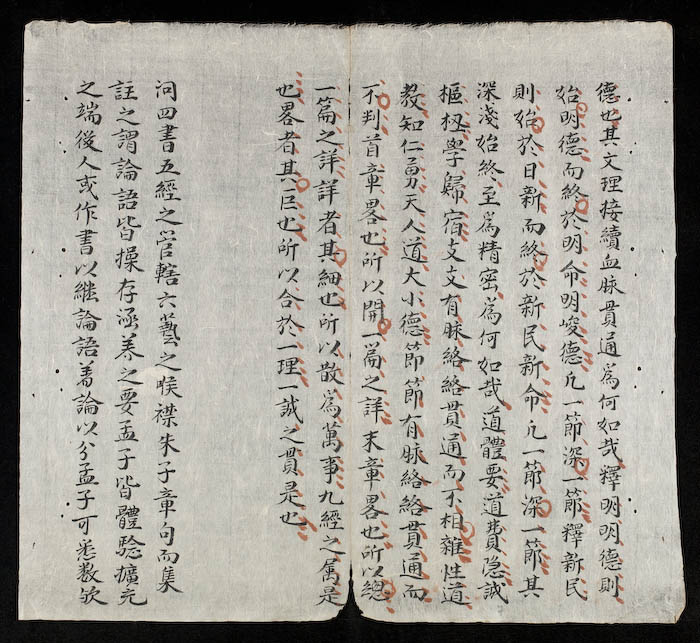 德也其文理接續血脉貫通為何如哉釋明明德則
始明德而終於明命明峻德凡一節深一節釋新民
則始於日新而終於新民新命凡一節深一節其
深淺始終至為精密為何如哉道體要道費隱誠
樞極學歸宿支支有脉絡絡貫通而不相雜性道
教知仁勇天人道大小德節節有脉絡絡貫通而
不判首章畧也所以開一篇之詳末章畧也所以總
一篇之詳詳者其細也所以散為萬事九經之属是
也畧者其巨也所以合於一理一誠之貫是也
問四書五經之管轄六藝之喉襟朱子章句而集
註之謂論語皆操存涵養之要孟子皆體驗擴充
之端後人或作書以継論語著論以分孟子可悉数欤